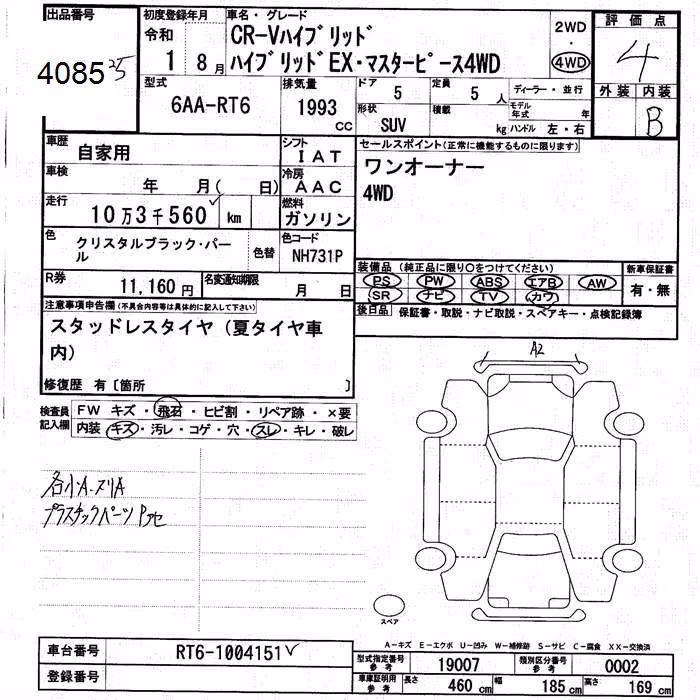 出品番号
408525
初度登録年月
令和
1 8月
車名・グレード
CR-Vハイブリッド
ハイブリッドEX・マスターピース4WD
2WD
・
4WD
評価点
4
外装 内装
B
型式
6AA-RT6
排気量
1993
cc
ドア
5
定員
5 人
形状
SUV
積載
kg
ディーラー・並行
モデル年式 年
ハンドル 左・右
車歴
自家用
シフト
IAT
車検
年 月( 日)
冷房
AAC
走行
10万3千560 km
燃料
ガソリン
色
クリスタルブラック・パール
色替
色コード
NH731P
R券
11,160円
名変通知期限
月 日
セールスポイント(正常に機能するものに限ります)
ワンオーナー
4WD
装備品(純正品に限り○をつけてください)
PS PW ABS エアB AW
SR ナビ TV カワ
新車保証書
有・無
後日品 保証書・取説・ナビ取説・スペアキー・点検記録簿
注意事項申告欄(不具合内容等は具体的に記入して下さい)
スタッドレスタイヤ(夏タイヤ車
内)
修復歴 有〔箇所 〕
検査員
記入欄
FW キズ・飛石・ヒビ割・リペア跡・×要
内装 キズ・汚レ・コゲ・穴・スレ・キレ・破レ
各小A.ヌリA
プラスチックパーツ
A2
スペア
A-キズ E-エクボ U-凹み W-補修跡 S-サビ C-腐食 XX-交換済
車台番号
RT6-1004151
登録番号
型式指定番号
参考
19007
類別区分番号
参考
0002
車庫証明用
参考
長さ 460 cm 幅 185 cm 高さ 169 cm